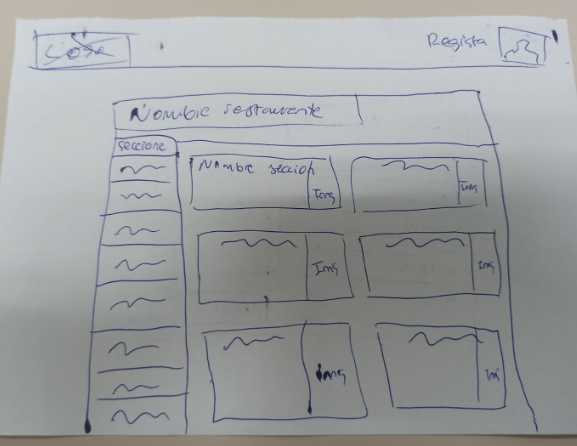 Registra
Nombre restaurante
seccione
Nombre seccion
Img
Img
Img
Img
Img
Img